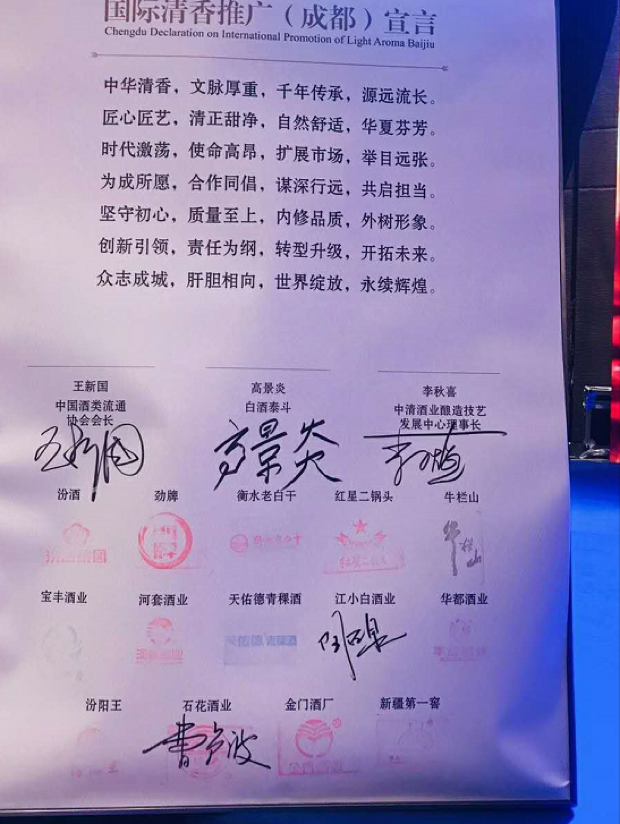 国际清香推广（成都）宣言
Chengdu Declaration on International Promotion of Light Aroma Baijiu
中华清香，文脉厚重，千年传承，源远流长。
匠心匠艺，清正甜净，自然舒适，华夏芬芳。
时代激荡，使命高昂，扩展市场，举目远张。
为成所愿，合作同倡，谋深行远，共启担当。
坚守初心，质量至上，内修品质，外树形象。
创新引领，责任为纲，转型升级，开拓未来。
众志成城，肝胆相向，世界绽放，永续辉煌。
王新国 高景炎 李秋喜
中国酒类流通 白酒泰斗 中清酒业酿造技艺
协会会长 发展中心理事长
王新国 高景炎
汾酒 劲牌 衡水老白干 红星二锅头 牛栏山
牛栏山
宝丰酒业 河套酒业 天佑德青稞酒 江小白酒业 华都酒业
天佑德 青稞酒
汾阳王 石花酒业 金门酒厂 新疆第一窖
曹卫波